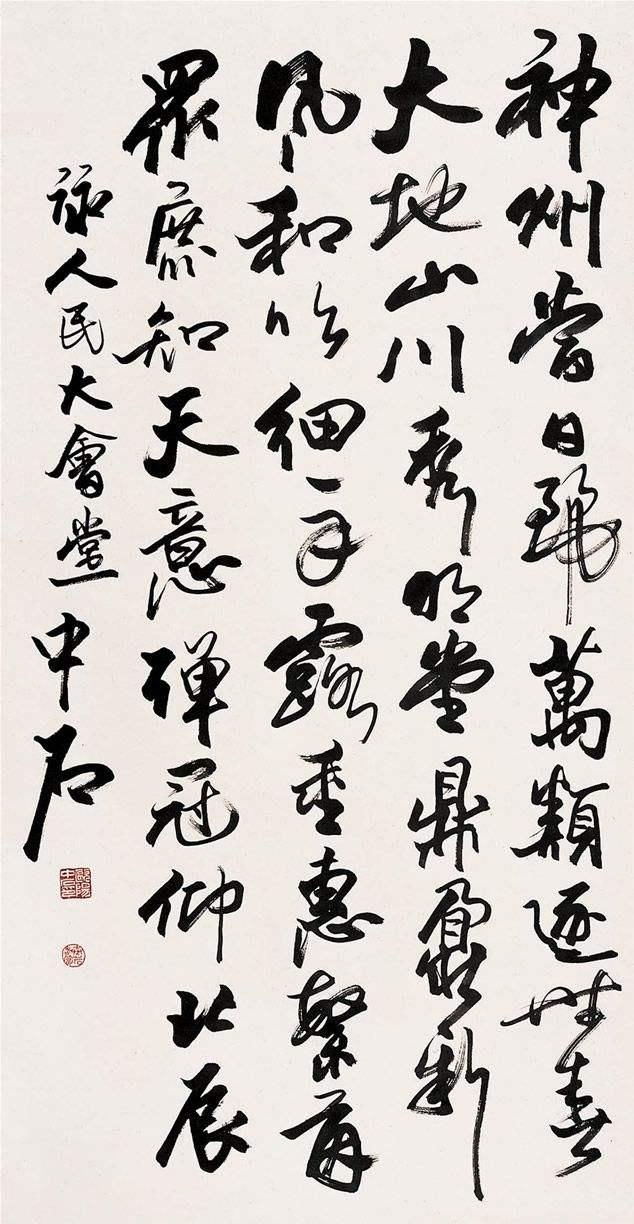 神州當日麗萬類遂性春
大地山川秀明堂鼎鼐新
風和吹細露垂惠繁
眾庶知天意彈冠仰北辰
詠人民大會堂中石